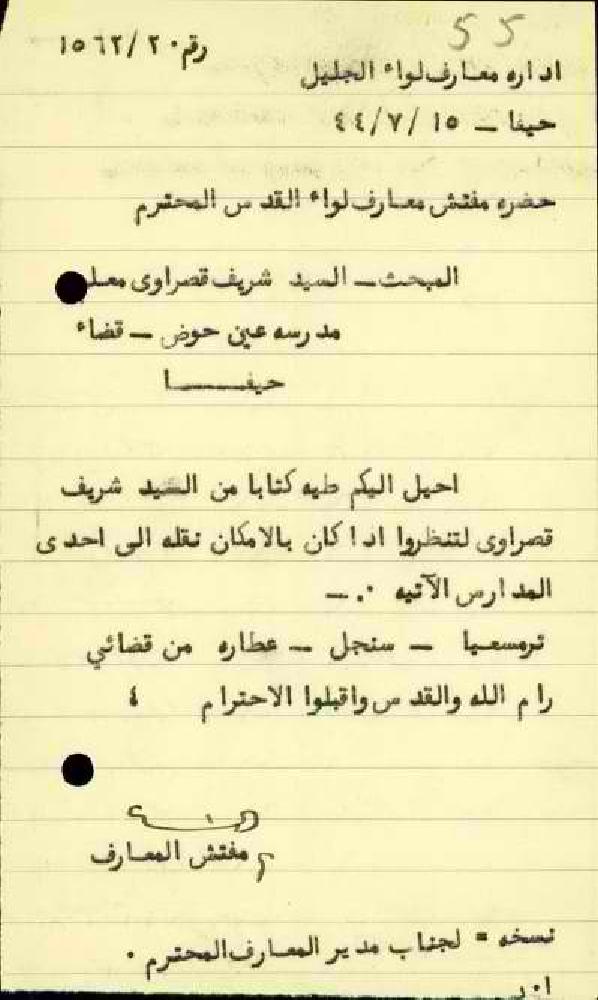 55
رقم ٢٠/١٥٦٢
اداره معارف لواء الجليل
حيفا ــ ١٥ /٧/ ٤٤
حضره مفتش معارف لواء القدس المحترم
المبحث ــ السيد شريف قصراوى معلم
مدرسه عين حوض ــ قضاء
حيفـــــا
احيل اليكم طيه كتابا من السيد شريف
قصراوى لتنظروا اذا كان بالامكان نقله الى احدى
المدارس الآتيه .ــ
ترمسعيا ــ سنجل ــ عطاره من قضائي
رام الله والقدس واقبلوا الاحترام ٤
مفتش المعارف
نسخه = لجناب مدير المعارف المحترم .